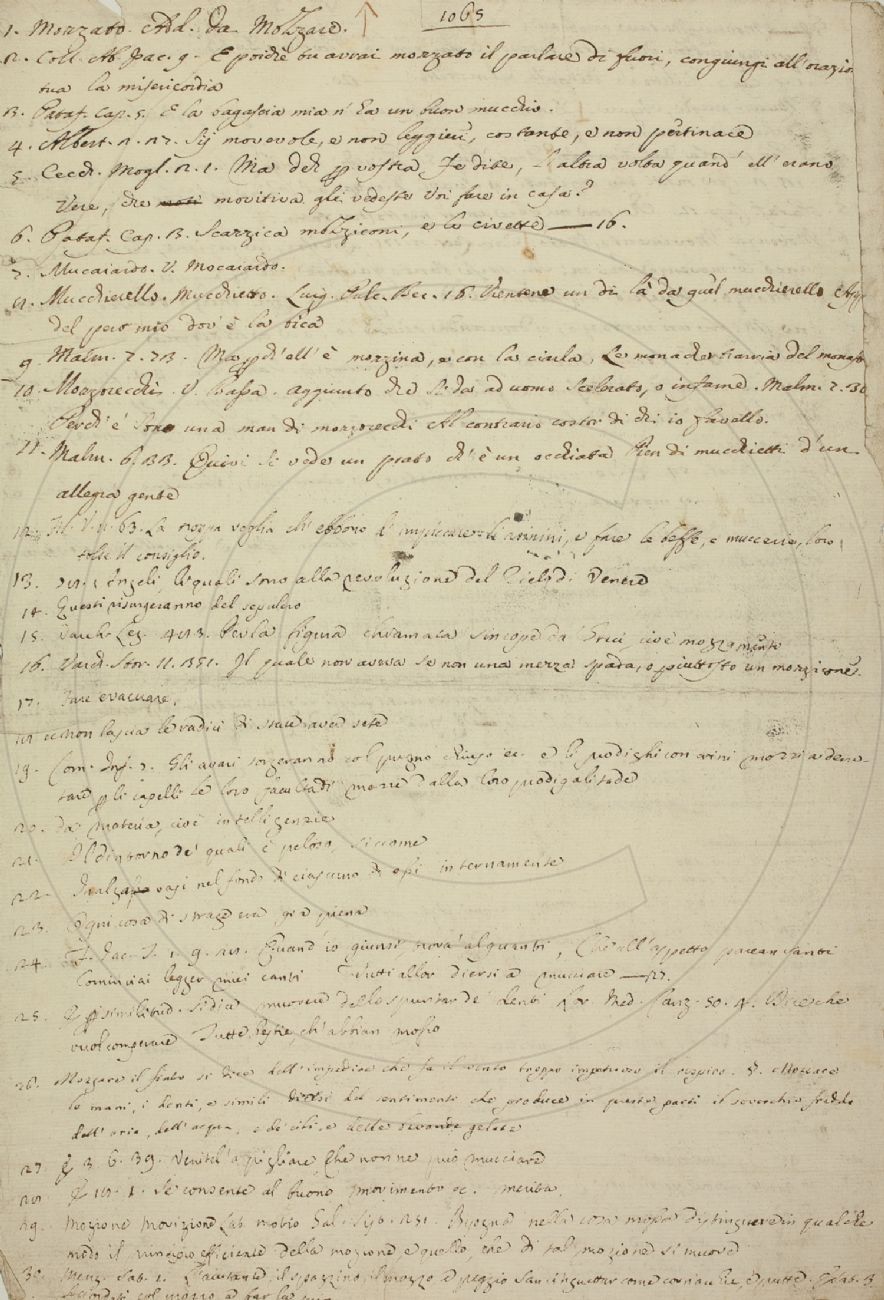 1065
1. Mozzato. Add. da Mozzare.
2. Coll. Ab. Isac. 9. E poichè tu avrai mozzato il parlare di fuori, congiungi all'orazio
tua la misericordia
3. Pataf. Cap. 5. E la bagascia mia n'ha un buon mucchio.
4. Albert. 2. 27. Sij movevole, e non leggieri, costante, e non pertinace
5. Cecch. Mogl. 2. 1. Ma deh per vostra fe dite, l'altra volta quand' ell' erano
Vere, che movitiva gli vedeste voi fare in casa?
6. Pataf. Cap. 3. Scarzica mozziconi, e la civetta — 16.
7. Mucaiardo. V. Mocaiardo.
8. Mucchierello. Mucchietto. Luig. Pulc. Bec. 16. Vientene un di là da quel mucchierello
del pero mio dov' è la bica
9. Malm. 7. 73. Ma perch'ell' è mozzina, e con la ciurla, Le monache trarria del monast
10. Mozzorecchi. V. bassa. aggiunto che si da ad uomo scelerato, o infame. Malm. 2. 30
Perch' e' sono una man di mozzorecchi Al contrario costor di chi io favello.
11. Malm. 6. 33. Quivi si vede un prato ch' è un occhiata Pien di mucchietti d'un
allegra gente
12. La pazza voglia ch' ebbono d' impiccare li asinini, e fare le beffe, e muccerie, loro
tolse il consiglio.
13. Angeli, li quali sono alla revoluzione del Cielo di Venere
14. Questi risurgeranno del sepulcro
15. Varch. Lez. 403. Per la figura chiamata sincope da' Greci, cioè mozzamento
16. Varch. Stor. 11. 351. Il quale non aveva se non una mezza spada, o piuttosto un mozzicone.
17. Fare evacuare.
18. e non lascia le radici di avere sete
19. Com. Inf. 7. Gli avari sorgeranno col pugno chiuso ec. e li prodighi con crini mozzi a deno-
tare per li capelli le loro facultadi mozze dalla loro prodigalitade
20. da materia, cioè intelligenzie
21. Al dintorno de' quali è peloso, siccome
22. vasi nel fondo di ciascuno di essi internamente
23. Ogni cosa di strage era già piena
24. F. Jac. T. 1. 9. 28. Quand'io giunsi, trova' alquanti, Che all'aspetto parean santi
Cominciai legger miei canti Tutti allor diersi a mucciare — 27.
25. Per similitud. si dice muovere dello spuntar de' denti Lor. Med. Canz. 50. 4. Bicesche
vuol comperare Tutte bestie, ch'abbian mosso
26. Mozzare il fiato si dice dell' impedire che fa il vento troppo impetuoso il respiro. §. Mozzare
le mani, i denti, e simili dicesi del sentimento che produce in queste parti il soverchio freddo
dell' aria, dell' acqua, e de' cibi, e delle bevande gelate
27. F. 3. 6. 39. Venitel' a pigliare, Che non ne può mucciare
28. 1. Se consente al buono movimento ec. merita.
29. Mozione Movizione Lat. motio Gal. Sist. 251. Bisogna nella cosa mossa distinguere in qualche
modo il principio efficiente della mozione, e quello, che di tal mozione si muove
30. Menz. Sat. 1. il spazzino, il mozzo